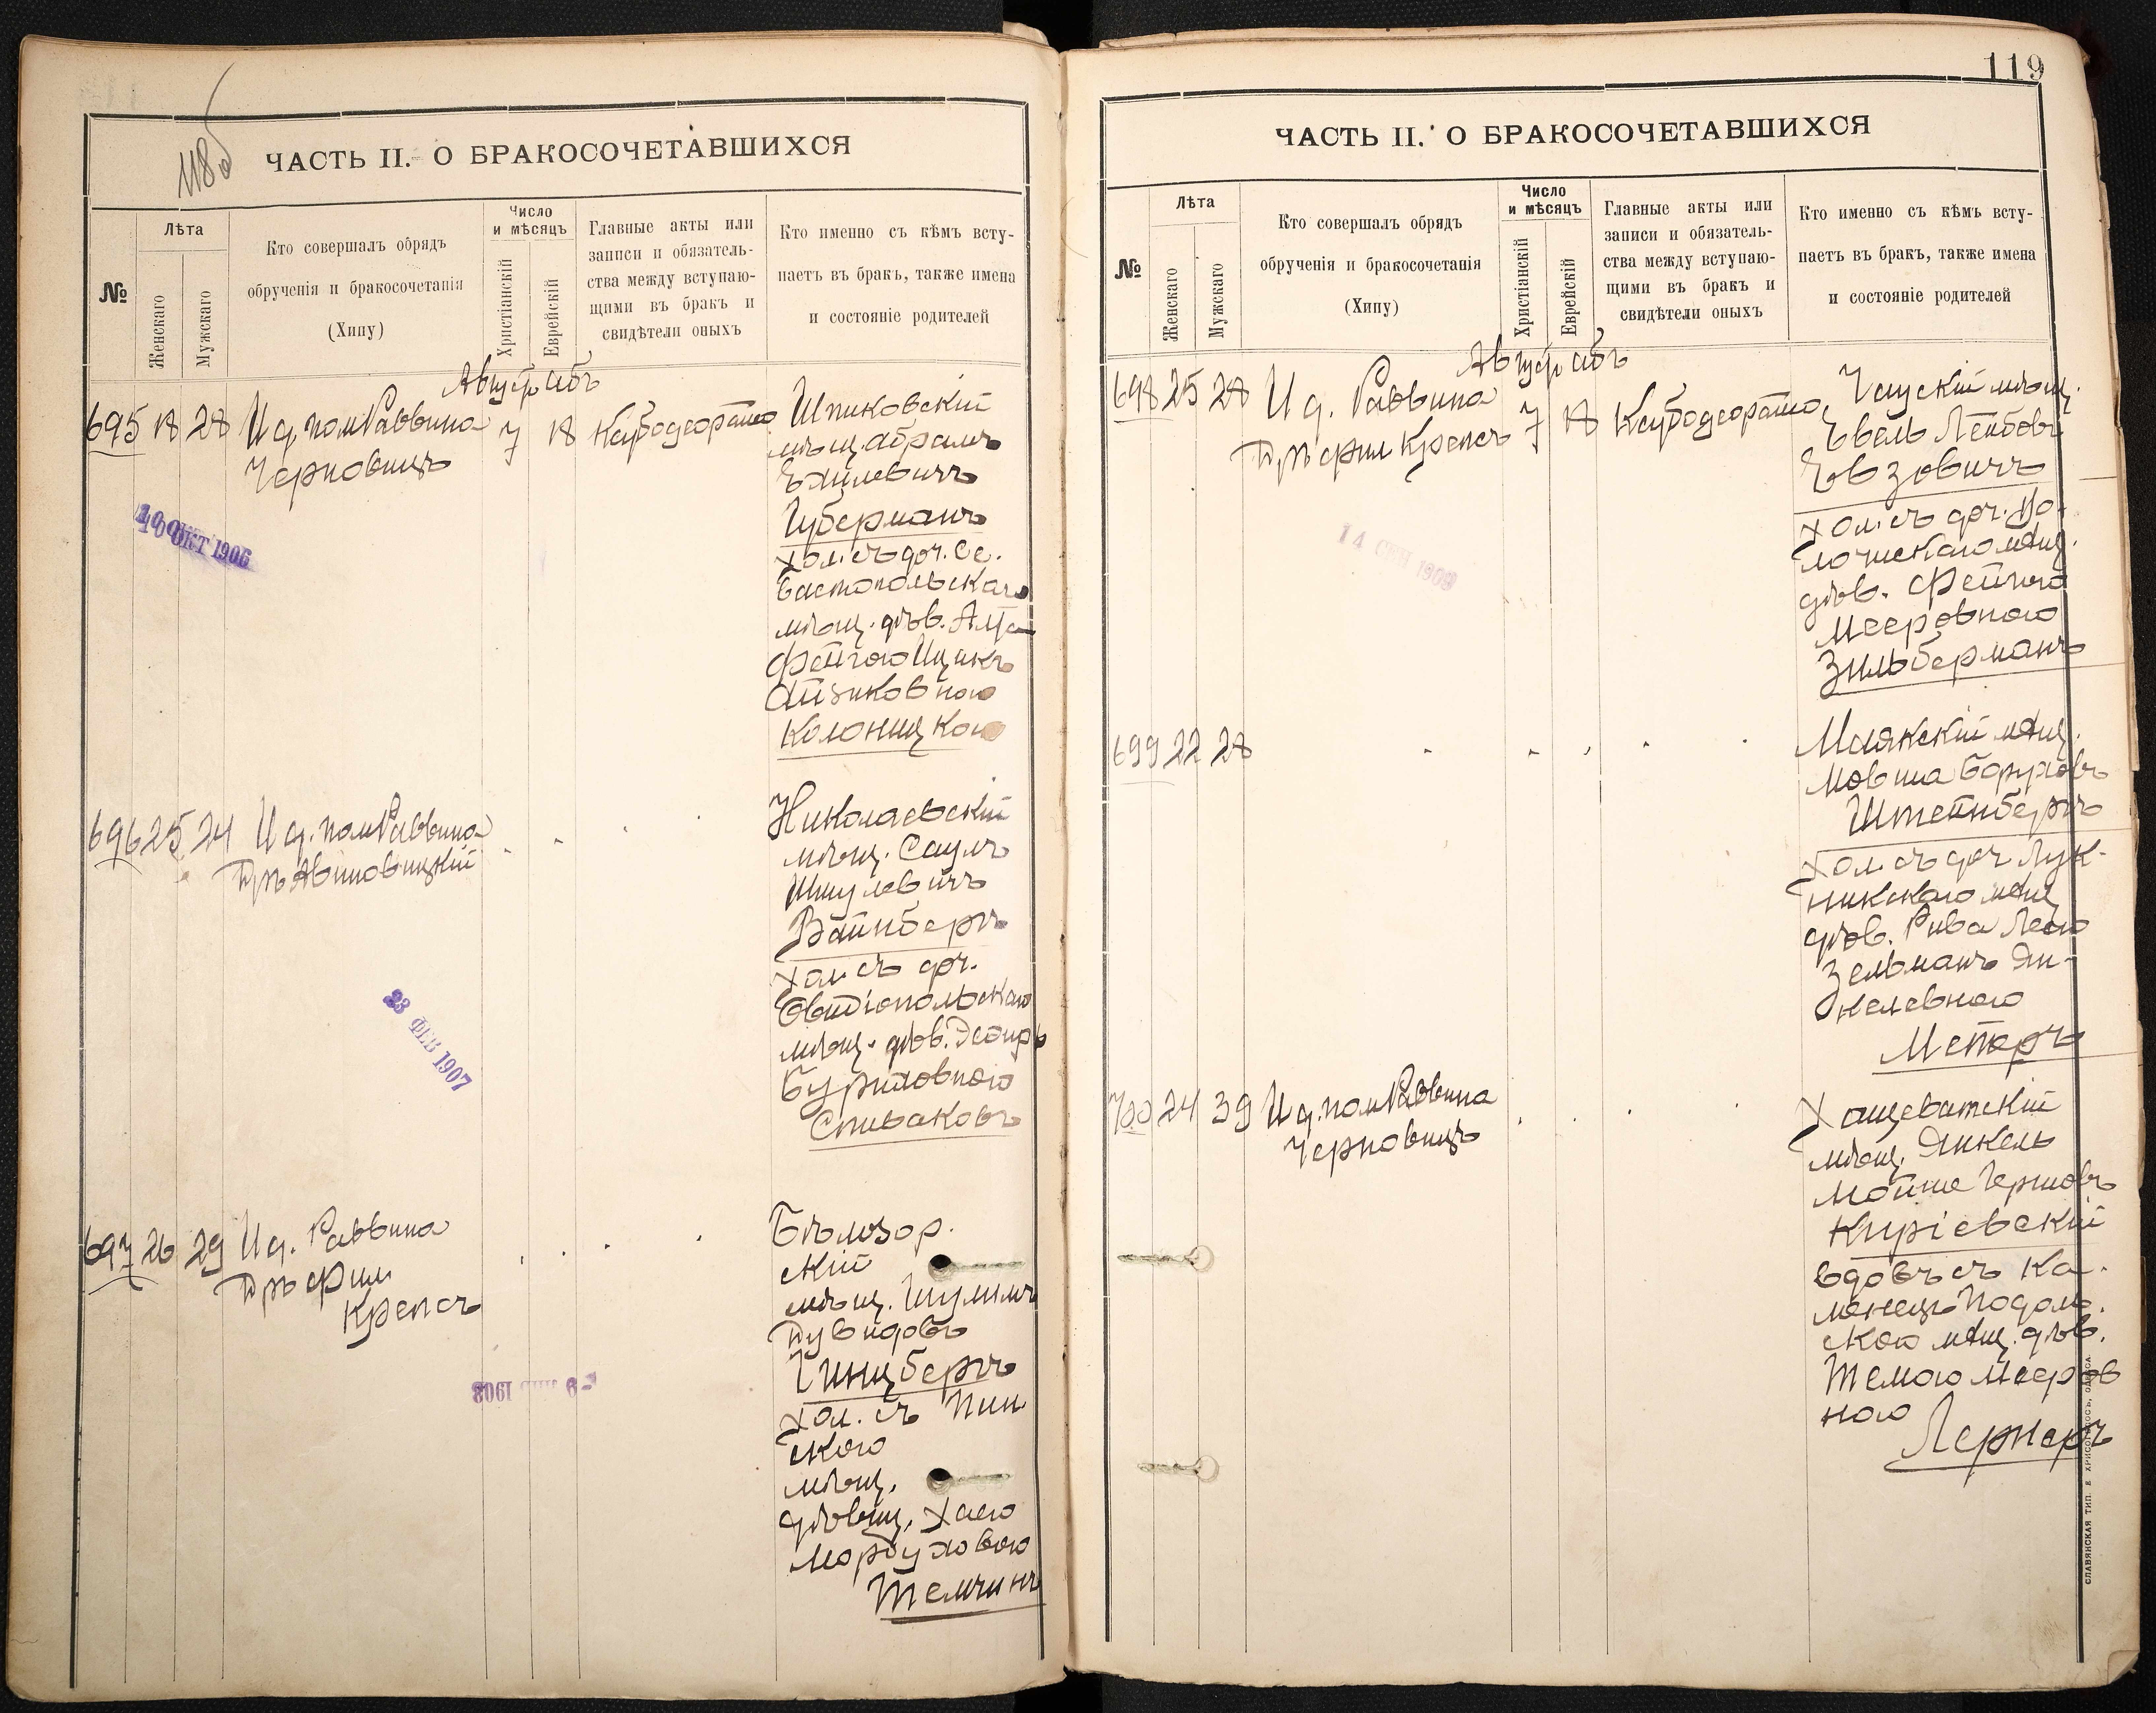 118 об
ЧАСТЬ II. О БРАКОСОЧЕТАВШИХСЯ
№
Лѣта
Женскаго
Мужскаго
Кто совершалъ обрядъ
обрученія и бракосочетанія
(Хипу)
Число
и мѣсяцъ
Христіанскій
Еврейскій
Главные акты или
записи и обязатель-
ства между вступаю-
щими въ бракъ и
свидѣтели оныхъ
Кто именно съ кѣмъ всту-
паетъ въ бракъ, также имена
и состояніе родителей
Август абъ
695 18 28 И д. пом Раввина 7 18
Черновицъ
Шпиковскій
мѣщ. Абрамъ
Хаилевичъ
Губерманъ
хол. съ доч. Се-
вастопольскаго
мѣщ. дѣв. Алта
Фейгою Ицикъ
Айзиковною
Колоницкою
10 ОКТ 1906
696 25 24 И д. пом Раввина
Д-ръ Авиновицкій
Николаевскій
мѣщ. Саулъ
Шмулевичъ
Вайнберъ
хол съ доч.
Овидіопольскаго
мѣщ. дѣв. Эсфирь
Буриховною
Спиваковъ
23 ФЕВ 1907
697 26 29 И д. Раввина
Д-ръ Фил
Крепсъ
Бѣлозор.
скій
мѣщ. Шулимъ
Дувидовъ
Гинцбергъ
хол. съ Пин
скою
мѣщ.
дѣвиц. Хаею
Мордуховою
Темчинъ
1908
119
ЧАСТЬ II. О БРАКОСОЧЕТАВШИХСЯ
№
Лѣта
Женскаго
Мужскаго
Кто совершалъ обрядъ
обрученія и бракосочетанія
(Хипу)
Число
и мѣсяцъ
Христіанскій
Еврейскій
Главные акты или
записи и обязатель-
ства между вступаю-
щими въ бракъ и
свидѣтели оныхъ
Кто именно съ кѣмъ всту-
паетъ въ бракъ, также имена
и состояніе родителей
Август абъ
698 25 28 И д. Раввина 7 18
Д-ръ фил Крепсъ
Чаускій мѣщ.
Евель Лейбовъ
Евзовичъ
хол. съ доч. Во-
лочискаго мѣщ.
дѣв. Фейгою
Мееровною
Зильберманъ
14 СЕН 1909
699 22 28
Маякскій мѣщ.
Мовша Боруховъ
Штейнбергъ
хол съ доч Лук-
никскаго мѣщ
дѣв. Рива Леею
Зельманъ Ян-
келевною
Мейеръ
700 24 39 И д. пом Раввина
Черновицъ
Хащеватскій
мѣщ. Янкель
Мойше Гершовъ
Киріевскій
вдовъ съ Ка-
менецъ Подоль-
скою мѣщ. дѣв.
Темою Мееров
ною
Лернеръ
СЛАВЯНСКАЯ ТИП. Е. ХРИСОГЕЛОСЪ, ОДЕССА.